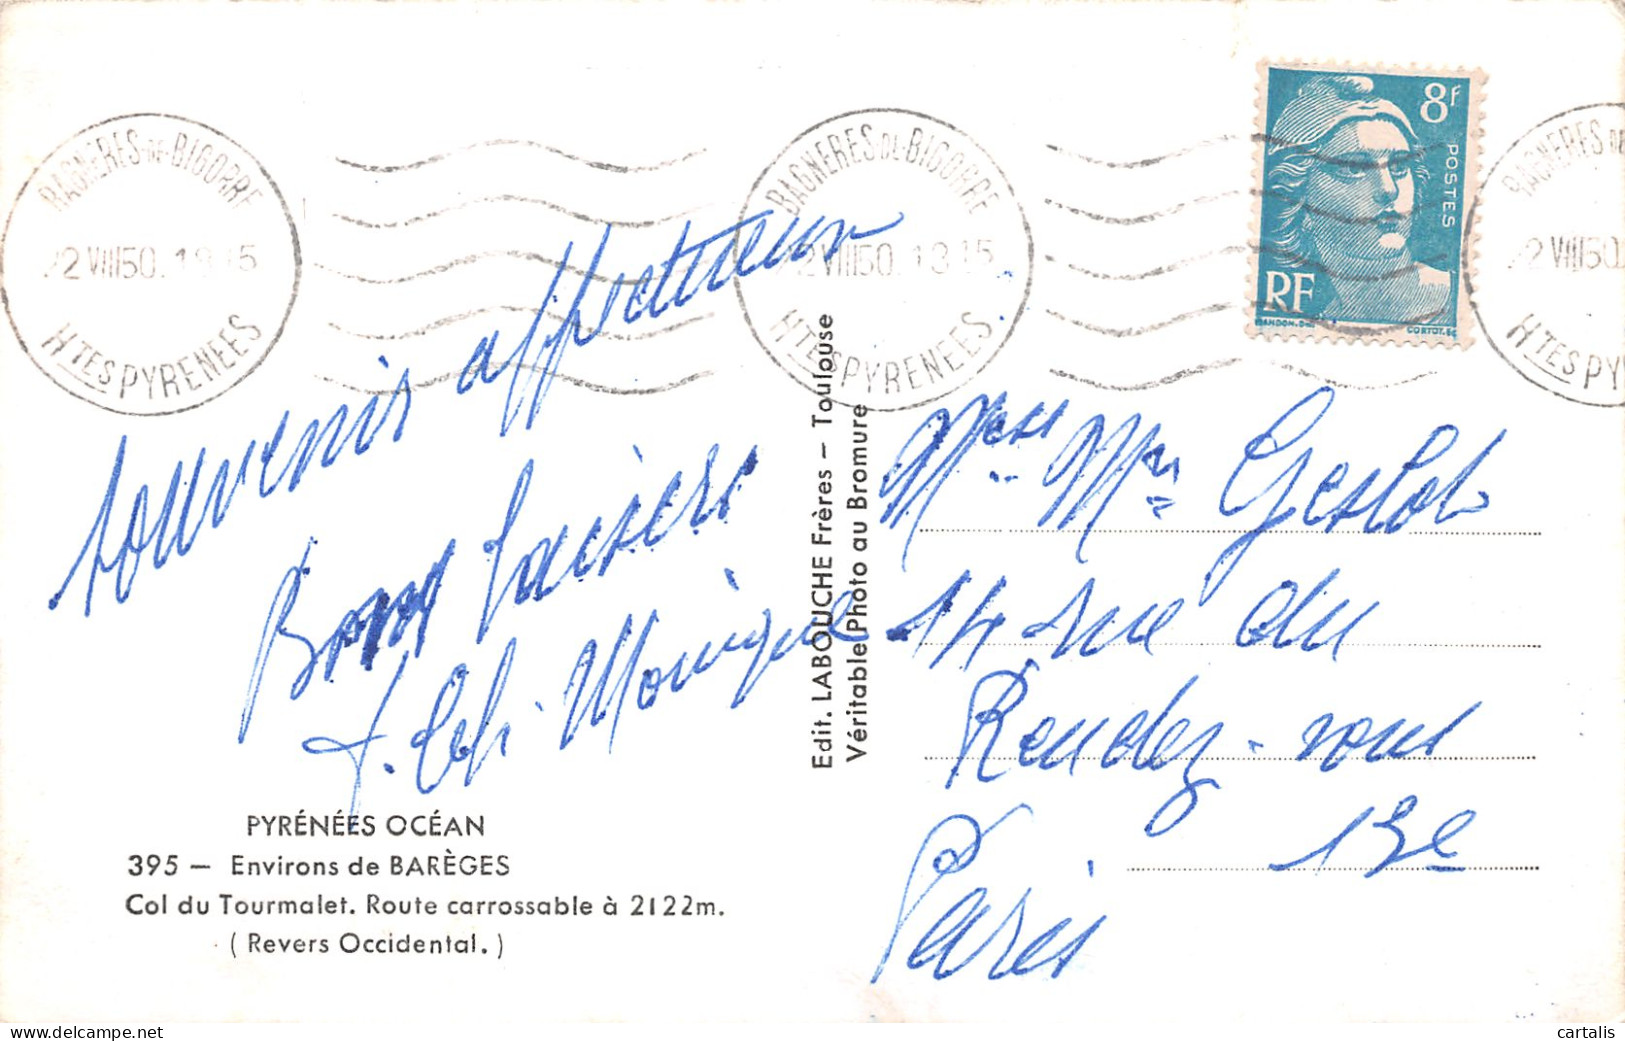 BAGNERES-DE-BIGORRE
22 VIII 50. 18 15
HTES PYRENEES
BAGNERES-DE-BIGORRE
2 VIII 50. 18 15
HTES PYRENEES
BAGNERES DE
2 VIII 50
HTES PY
8F
POSTES
RF
GANDON.DEL
CORTOT.SC
souvenir affectueux
Bons baisers
Monique
Edit. LABOUCHE Frères – Toulouse
Véritable Photo au Bromure
Geslot
14 rue du
Rendez-vous
12e
Paris
PYRÉNÉES OCÉAN
395 – Environs de BARÈGES
Col du Tourmalet. Route carrossable à 2122m.
( Revers Occidental. )
cartalis